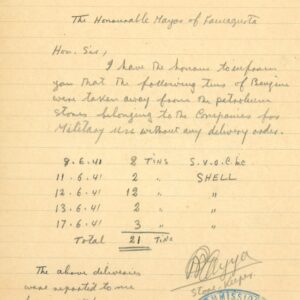 The Honourable Mayor of Famagusta
Hon. Sir,
I have the honour to inform
you that the following tins of Benzine
were taken away from the petroleum
Stores belonging to the Companies for
Military Use without any delivery order.
8.6.41 2 Tins S.V.O.C. Inc
11.6.41 2 " SHELL
12.6.41 12 " "
13.6.41 2 " "
17.6.41 3 " "
Total 21 Tins
Store Keeper
The above deliveries
were reported to me
COMMISSIO